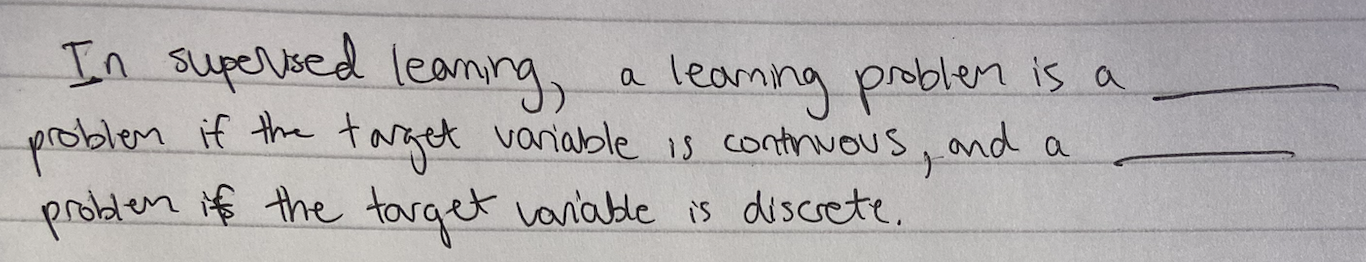 In supervised learning, a learning problem is a ______
problem if the target variable is continuous, and a ______
problem if the target variable is discrete.